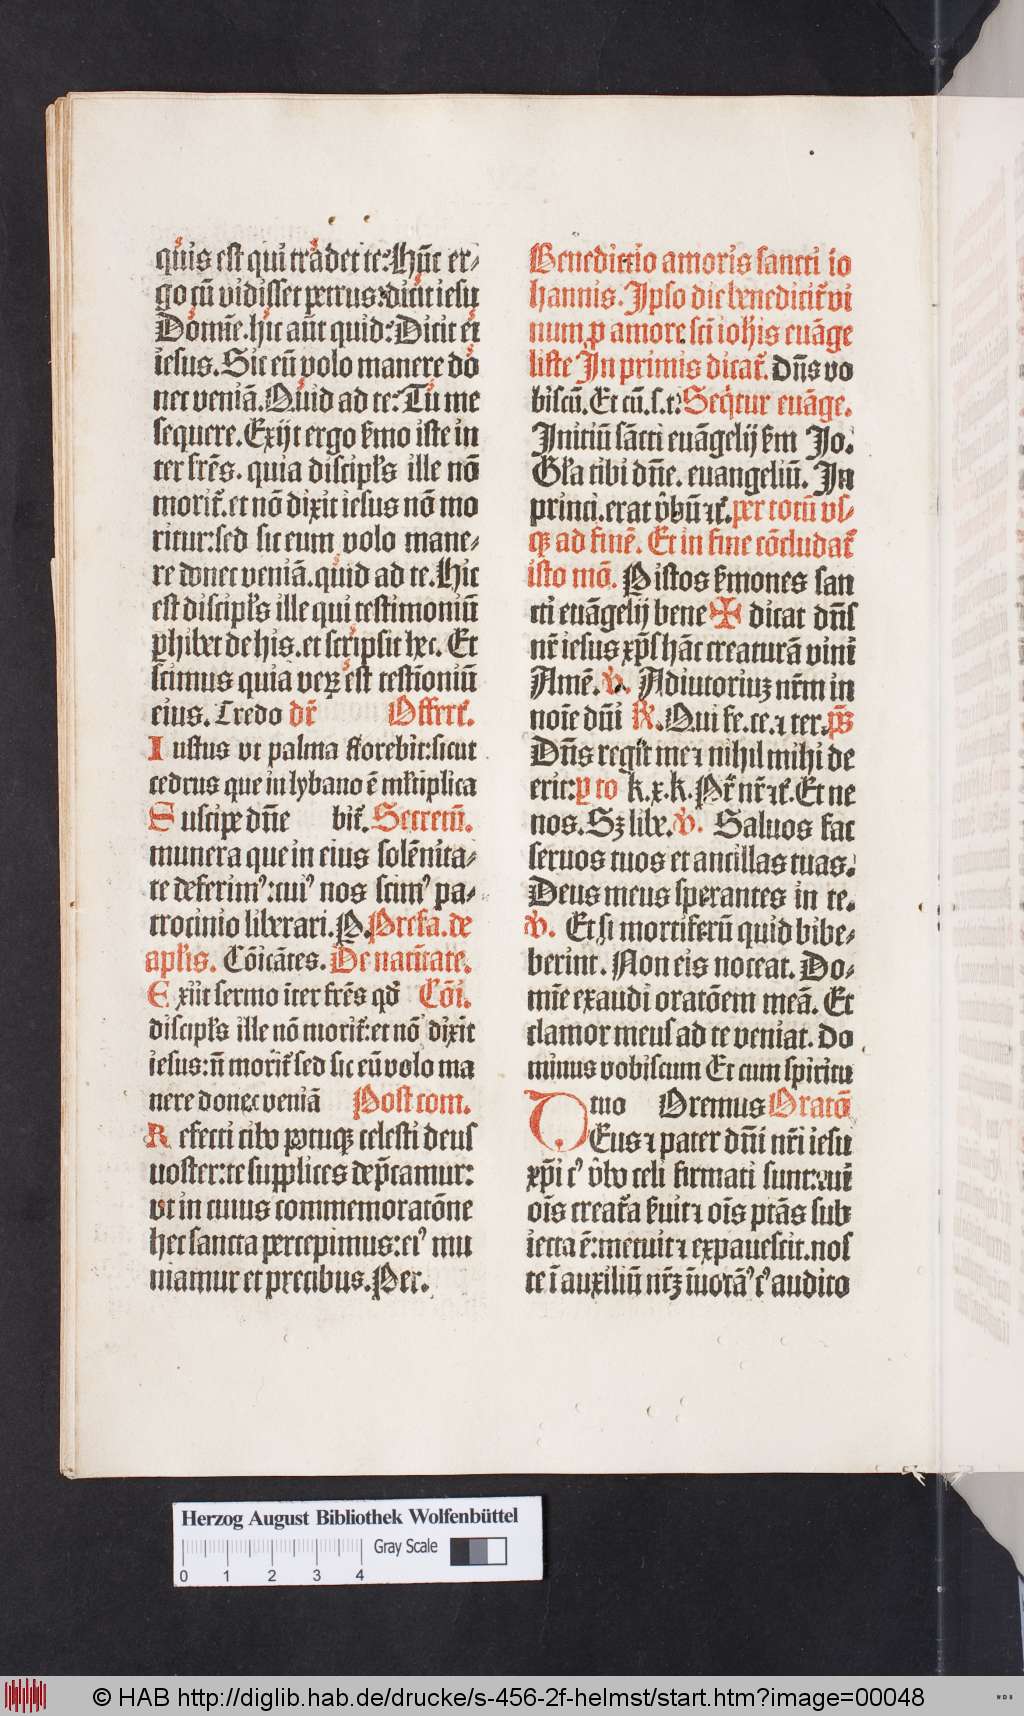 quis est qui tradet te: Hūc er⸗
go cū vidisset petrus: dicit iesu
Domīe. hic aūt quid: Dicit ei
iesus. Sic eū volo manere do
nec veniā. Quid ad te: Tu me
sequere. Exijt ergo sermo iste in
ter frēs. quia discipl's ille nō
morit᷑. et nō dixit iesus nō mo
ritur: sed sic eum volo mane⸗
re donec veniā. quid ad te. Hic
est discipl's ille qui testimoniū
ꝑhibet de his. et scripsit hec. Et
scimus quia veꝝ est testīoniū
eius. Credo dē Offert᷑.
Iustus vt palma florebit: sicut
cedrus que in lybano ē ml'tiplica
Suscipe dn̄e bit᷑. Secretū.
munera que in eius solēnita⸗
te deferimꝰ: cuiꝰ nos scimꝰ pa⸗
trocinio liberari. P. Prefa. de
apl'is. Cōicātes. De natītate.
Exiit sermo īter frēs qd̄ Cōi.
discipl's ille nō morit᷑: et nō dixit
iesus: n̄ morit᷑ sed sic eū volo ma
nere donec veniā Post com.
Refecti cibo potuqꝫ celesti deus
noster: te supplices dep̄camur:
vt in cuius commemoratōne
hec sancta percepimus: eiꝰ mu
niamur et precibus. Per.
Benedictio amoris sancti io
hannis. Ipso die benedicit᷑ vi
num ꝓ amore scī iohis euāge
liste In primis dicat᷑. Dn̄s vo
biscū. Et cū. s. t. Seqtur euāge.
Initiū sācti euāgelij sm Jo.
Gl'a tibi dn̄e. euangeliū. In
princi. erat v̄bū ⁊c̄. per totū vs⸗
qꝫ ad finē. Et in fine cōcludat᷑
isto mō. P istos sermones san
cti euāgelij bene ✠ dicat dn̄s
nr̄ iesus xp̄s hāc creaturā vini
Amē. ℣. Adiutoriuꝫ nr̄m in
noīe dn̄i ℟. Qui fe. ce. ⁊ ter. p̄s
Dn̄s regit me ⁊ nihil mihi de
erit: ꝑ to k. x. k. Pr̄ nr̄ ⁊c̄. Et ne
nos. Sꝫ libe. ℣. Saluos fac
seruos tuos et ancillas tuas.
Deus meus sperantes in te.
℣. Et si mortiferū quid bibe⸗
berint. Non eis noceat. Do⸗
mīe exaudi oratōem meā. Et
clamor meus ad te veniat. Do
minus vobiscum Et cum spiritu
tuo Oremus Oratō
DEus ⁊ pater dn̄i nr̄i iesu
xp̄i cꝰ v̄bo celi firmati sunt: cui
oīs creat᷑a s̄uit ⁊ oīs ptās sub
iecta ē: metuit ⁊ expauescit. nos
te ī auxiliū nr̄ꝫ īuocāꝰ cꝰ audito
Herzog August Bibliothek Wolfenbüttel
Gray Scale
0 1 2 3 4
© HAB http://diglib.hab.de/drucke/s-456-2f-helmst/start.htm?image=00048